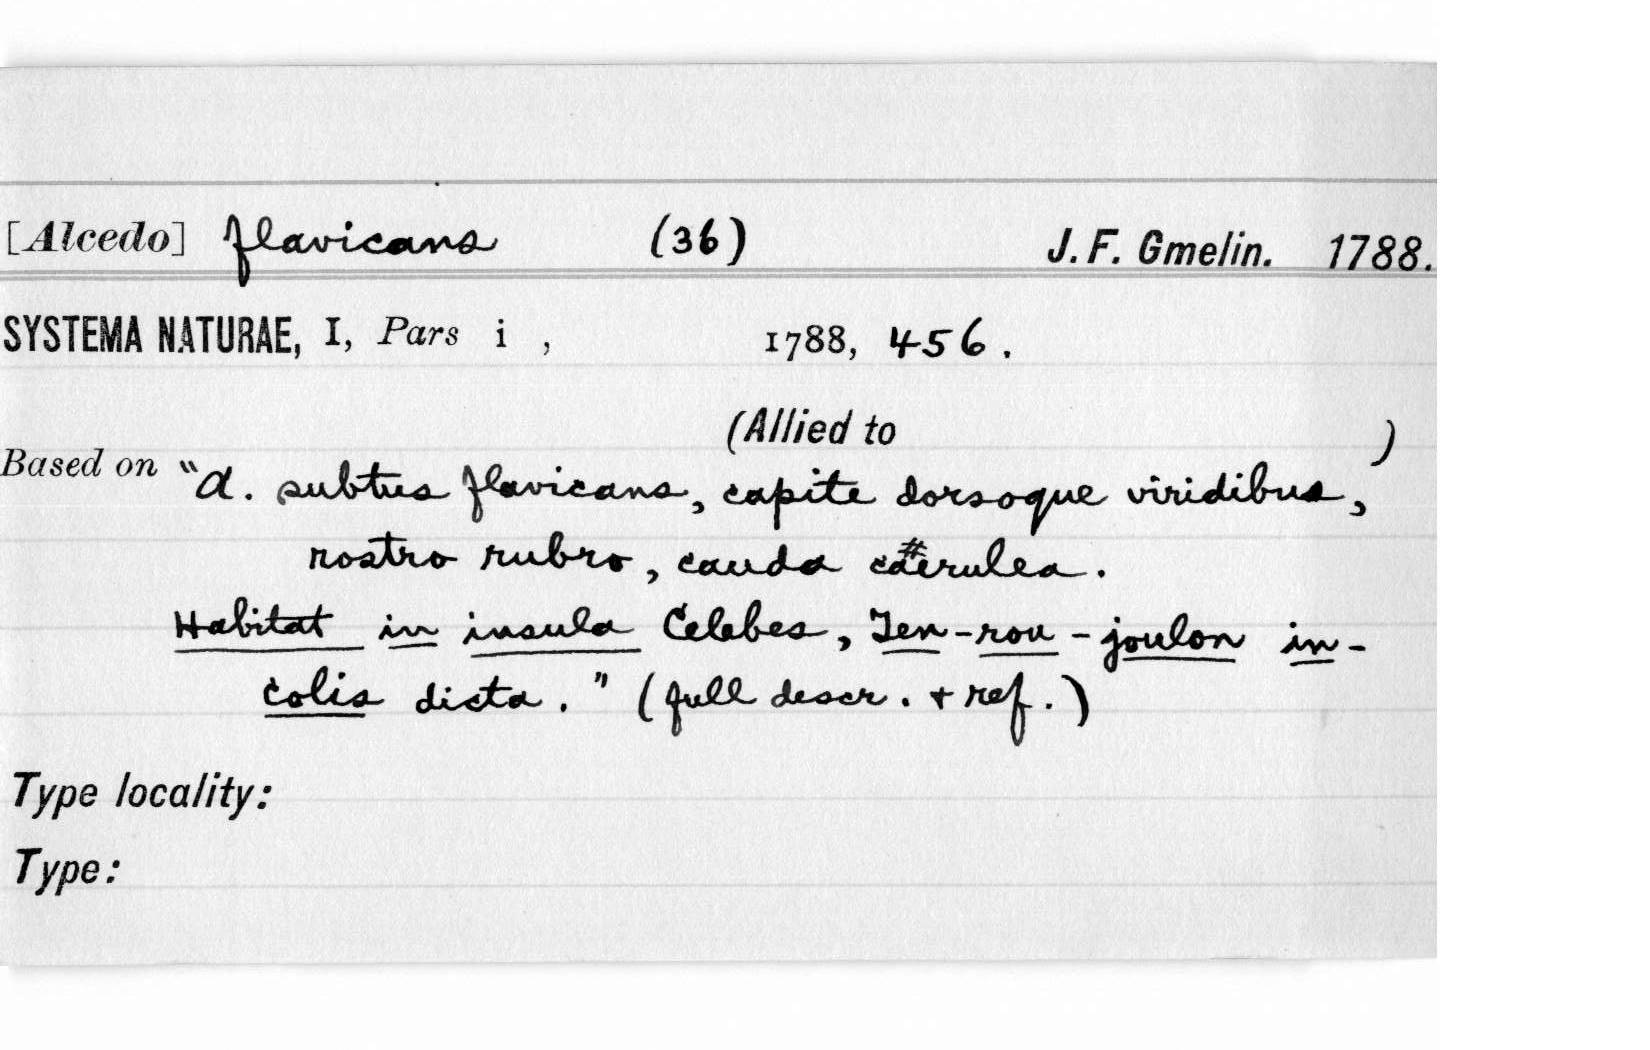 [Alcedo] flavicans (36) J. F. Gmelin. 1788.
SYSTEMA NATURAE, I, Pars i , 1788, 456.
(Allied to )
Based on "A. subtus flavicans, capite dorsoque viridibus,
rostro rubro, cauda caerulea.
Habitat in insula Celebes, Ten-rou-joulon in-
colis dicta." (full descr. + ref.)
Type locality:
Type: